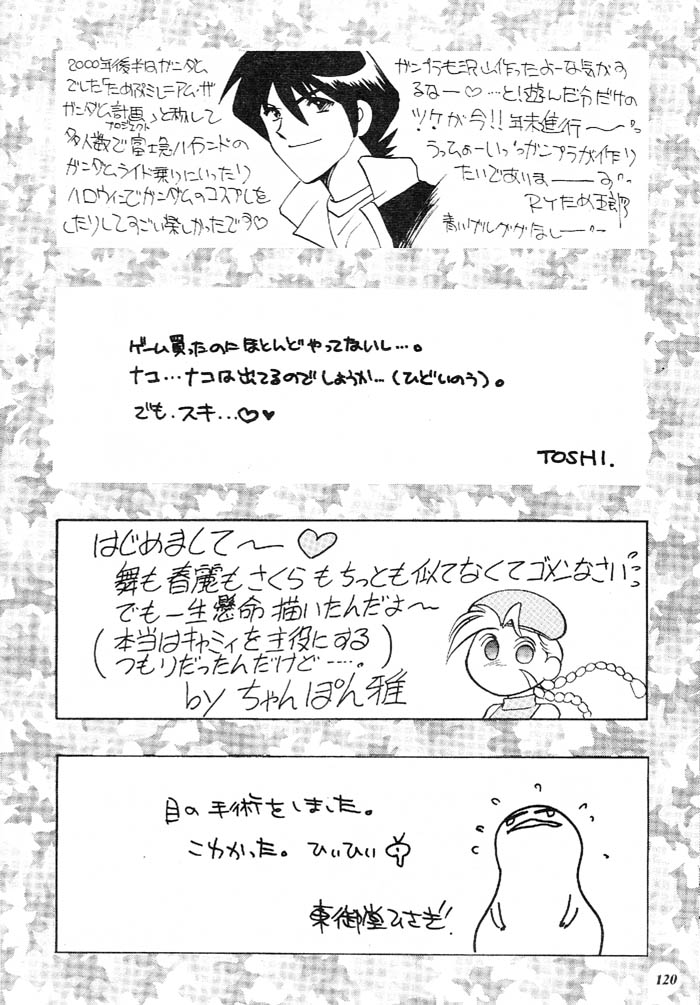 2000年後半はガンダム
でした「ためGミレニアム・ザ
ガンダム計画」と称して
プロジェクト
多人数で富士急ハイランドの
ガンダムライド乗りにいったり
ハロウィンでガンダムのコスプレを
したりしてすごい楽しかったです♡
ガンプラも沢山作ったよーな気がす
るなー♡…と!遊んだ分だけの
ツケが今!!年末進行〜〜
うってぁーいっガンプラが作り
たいでありまーーす
RYため五郎
ゲーム買ったのにほとんどやってないし…。
ナコ…ナコは出てるのでしょうか…(ひどいのう)。
でも、スキ…♡♥
TOSHI.
はじめまして〜 ♡
舞も春麗もさくらもちっとも似てなくてゴメンなさい
でも一生懸命描いたんだよ〜
(本当はキャミィを主役にする
つもりだったんだけど……。)
by ちゃんぽん雅
目の手術をしました。
こわかった。ひいひい
東御堂ひさぎ!
120